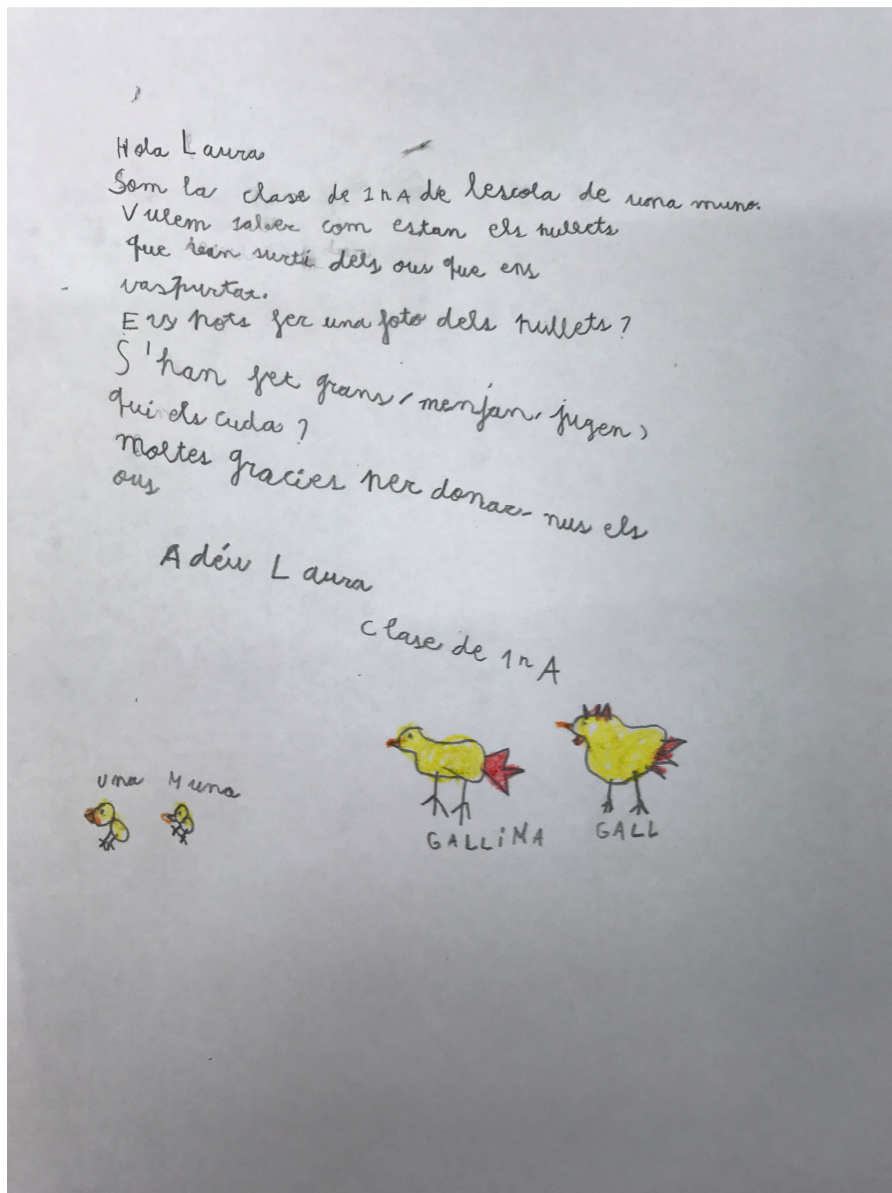 Hola Laura
Som la clase de 1nA de lescola de una muno.
Vulem saber com estan els pullets
que surti dels ous que ens
vaspurtar.
Ens pots fer una foto dels pullets?
S'han fet grans, menjan, jugen,
qui els cuda?
Moltes gracies per donar-nus els
ous
Adéu Laura
clase de 1nA
una Muna
GALLiNA
GALL